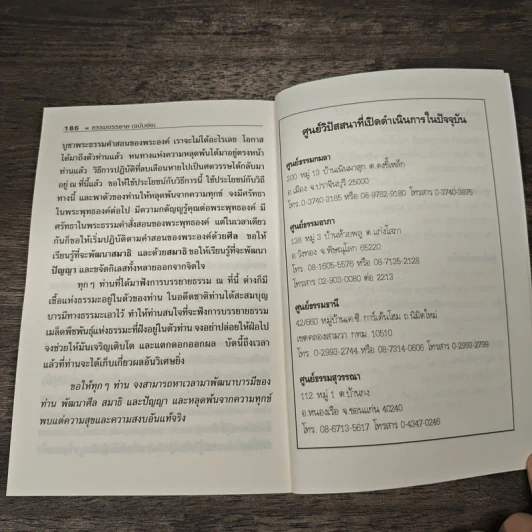 186 ๛ ธรรมบรรยาย (ฉบับย่อ)
บูชาพระธรรมคำสอนของพระองค์ เราจะไม่ได้อะไรเลย โอกาส
ได้มาถึงตัวท่านแล้ว หนทางแห่งความหลุดพ้นได้มาอยู่ตรงหน้า
ท่านแล้ว วิธีการปฏิบัติที่ลบเลือนหายไปเป็นศตวรรษได้กลับมา
อยู่ ณ ที่นี้แล้ว ขอให้ใช้ประโยชน์กับวิธีการนี้ ใช้ประโยชน์กับวิธี
การนี้ และพาตัวของท่านให้หลุดพ้นจากความทุกข์ จงมีศรัทธา
ในพระพุทธองค์ต่อไป มีความกตัญญูรู้คุณต่อพระพุทธองค์ มี
ศรัทธาในพระธรรมคำสั่งสอนของพระพุทธองค์ แต่ในเวลาเดียว
กันก็ขอให้เริ่มปฏิบัติตามคำสอนของพระพุทธองค์ด้วยศีล ขอให้
เรียนรู้ที่จะพัฒนาสมาธิ และด้วยสมาธิ ขอให้เรียนรู้ที่จะพัฒนา
ปัญญา และขจัดกิเลสทั้งหลายออกจากจิตใจ
ทุกๆ ท่านที่ได้มาฟังการบรรยายธรรม ณ ที่นี้ ต่างก็มี
เชื้อแห่งธรรมะอยู่ในตัวของท่าน ในอดีตชาติท่านได้สะสมบุญ
บารมีทางธรรมะเอาไว้ ทำให้ท่านสนใจที่จะฟังการบรรยายธรรม
เมล็ดพืชพันธุ์แห่งธรรมะที่ฝังอยู่ในตัวท่าน จงอย่าปล่อยให้ฝ่อไป
จงช่วยให้มันเจริญเติบโต และแตกดอกออกผล บัดนี้ถึงเวลา
แล้วที่ท่านจะได้เก็บเกี่ยวผลอันวิเศษยิ่ง
ขอให้ทุกๆ ท่าน จงสามารถหาเวลามาพัฒนาบารมีของ
ท่าน พัฒนาศีล สมาธิ และปัญญา และหลุดพ้นจากความทุกข์
พบแต่ความสุขและความสงบอันแท้จริง
ศูนย์วิปัสสนาที่เปิดดำเนินการในปัจจุบัน
ศูนย์ธรรมกมลา
200 หมู่ 13 บ้านเนินผาสุก ต.ดงขี้เหล็ก
อ.เมือง จ.ปราจีนบุรี 25000
โทร. 0-3740-3185 หรือ 08-9782-9180 โทรสาร 0-3740-3875
ศูนย์ธรรมอาภา
138 หมู่ 3 บ้านห้วยพลู ต.แก่งโสภา
อ.วังทอง จ.พิษณุโลก 65220
โทร. 08-1605-5576 หรือ 08-7135-2128
โทรสาร 02-903-0080 ต่อ 2213
ศูนย์ธรรมธานี
42/660 หมู่บ้านเค.ซี. การ์เด้นโฮม ถ.นิมิตใหม่
เขตคลองสามวา กทม. 10510
โทร. 0-2993-2744 หรือ 08-7314-0606 โทรสาร 0-2993-2799
ศูนย์ธรรมสุวรรณา
112 หมู่ 1 ต.บ้านกง
อ.หนองเรือ จ.ขอนแก่น 40240
โทร. 08-6713-5617 โทรสาร 0-4347-0246